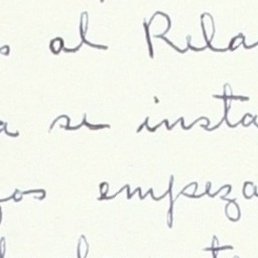 s al Rela
a se insta
gos empeza